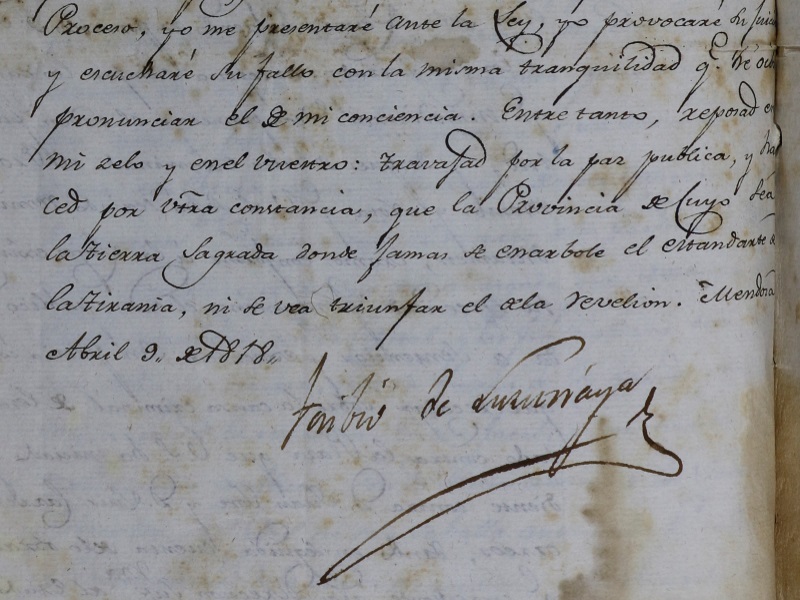 Proceso, yo me presentaré ante la Ley, yo provocaré su juic
y escucharé su fallo con la misma tranquilidad q.e hé oido
pronunciar el de mi conciencia. Entre tanto, reposad en
mi zelo y en el vuestro: travajad por la paz publica, y ha
ced por vtra constancia, que la Provincia de Cuyo séa
la tierra sagrada donde jamas se enarbole el estandarte d
la tirania, ni se vea triunfar el de la revelion. Mendoza
Abril 9,, de 1818,,
Toribio de Luzuriaga